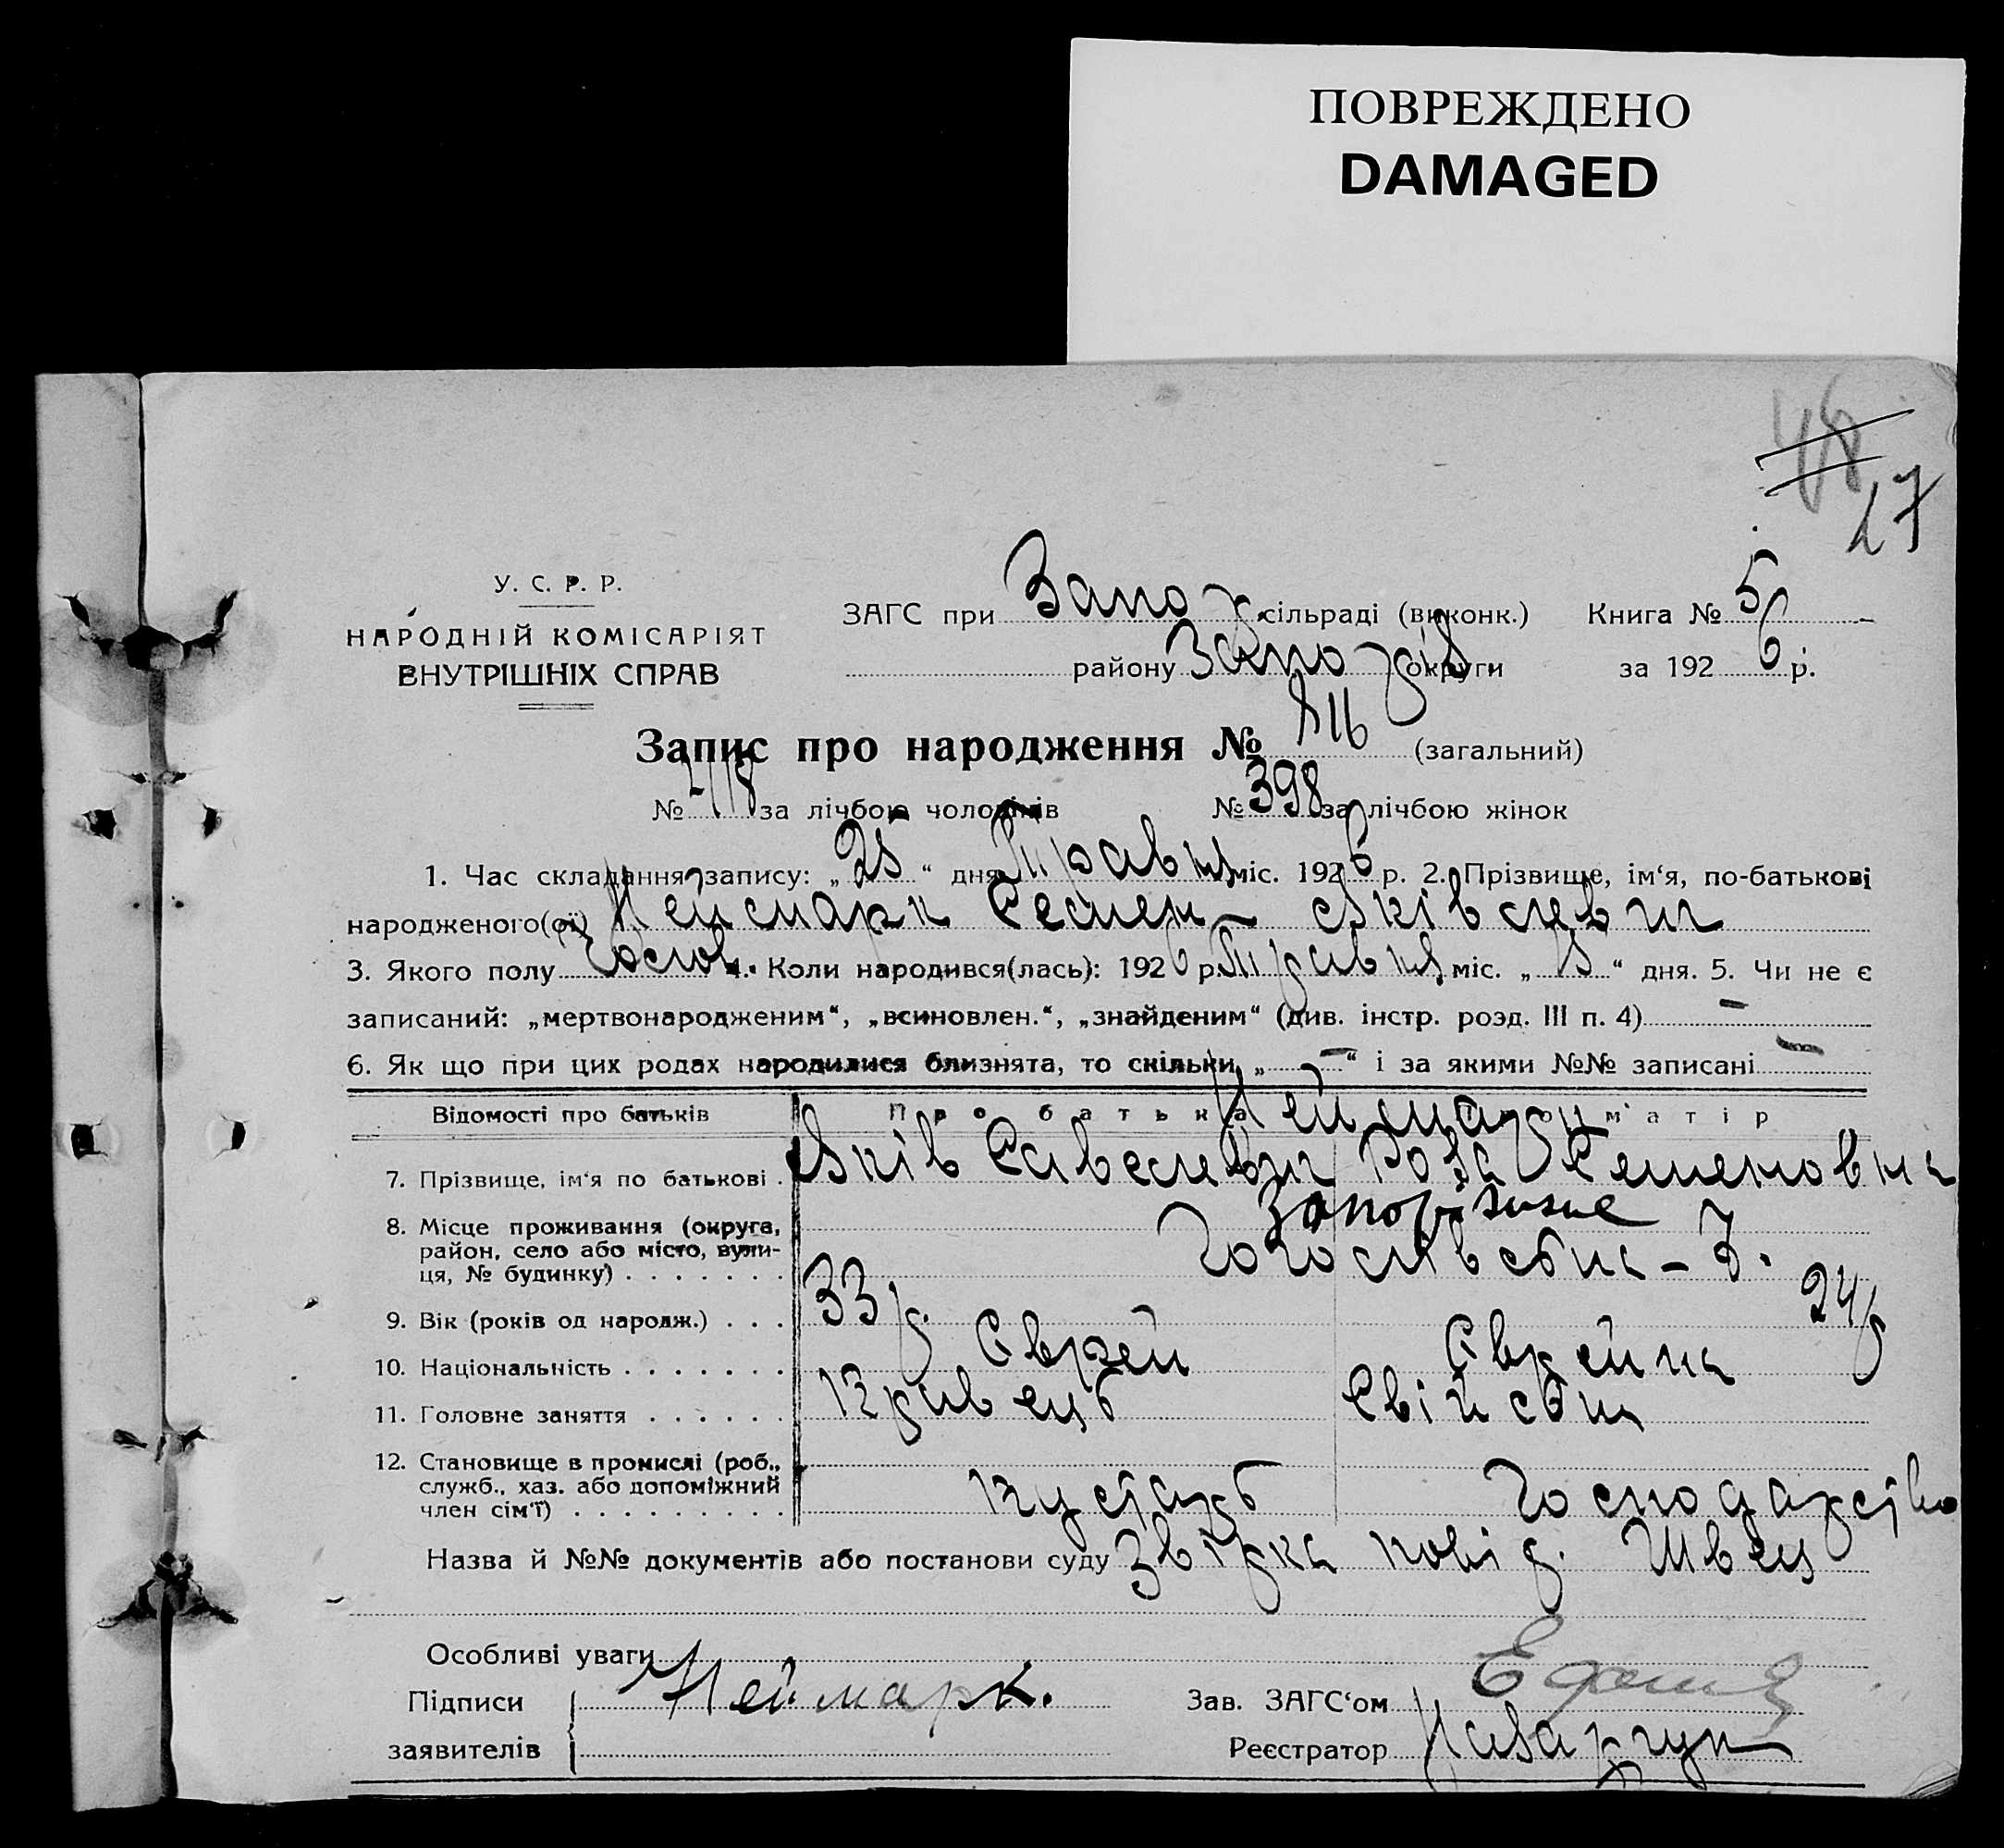 ПОВРЕЖДЕНО
DAMAGED
48
27
У. С. Р. Р.
НАРОДНІЙ КОМІСАРІЯТ
ВНУТРІШНІХ СПРАВ
ЗАГС при Запор. сільраді (виконк.) Книга № 5
району Запоріз. округи за 1926 р.
Запис про народження № 816 (загальний)
№ 418 за лічбою чоловіків № 398 за лічбою жінок
1. Час складання запису: „25“ дня Травня міс. 1926 р. 2. Прізвище, ім‘я, по-батькові
народженого(ої) Неймарк Семен Яківлевич
3. Якого полу Чолов. 4. Коли народився(лась): 1926 р. Травня міс. „ “ дня. 5. Чи не є
записаний: „мертвонародженим“, „всиновлен.“, „знайденим“ (див. інстр. розд. III п. 4) –
6. Як що при цих родах народилися близнята, то скільки „–“ і за якими №№ записані –
Відомості про батьків Про батька Про матір
Неймарк
7. Прізвище, ім‘я по батькові . Яків Савелевич Роза Семеновна
8. Місце проживання (округа, район, село або місто, вулиця, № будинку) . . . . . . . Запоріжжє
9. Вік (років од народж.) . . . 33 р. 24 р
10. Національність . . . . . . . Єврей Єврейка
11. Головне заняття . . . . . . Кравець Свійськ
12. Становище в промислі (роб., служб., хаз. або допоміжний член сім‘ї) . . . . . . . . . кустарь Господарство
Назва й №№ документів або постанови суду Звірка повід. Швец
Особливі уваги
Підписи Неймарк. Зав. ЗАГС‘ом
заявителів Реєстратор